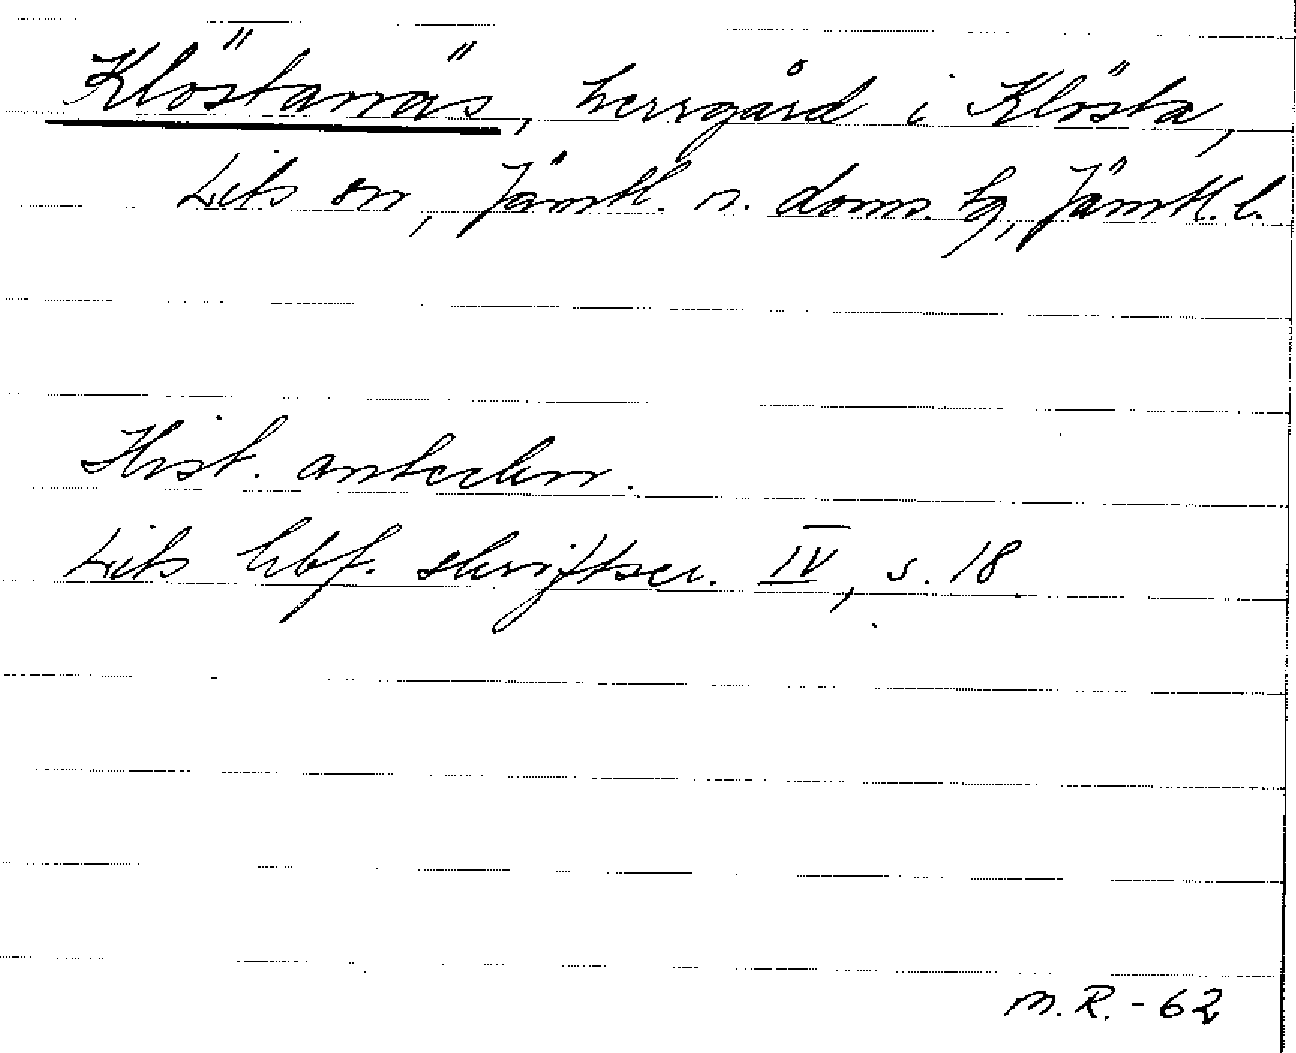 Klöstanäs, herrgård i Klösta,
Lits sn, Jämtl. n. doms. tg, Jämtl. l.
Hist. anteckn.
Lits hbf. skriftser. IV, s. 18
M.R. - 62